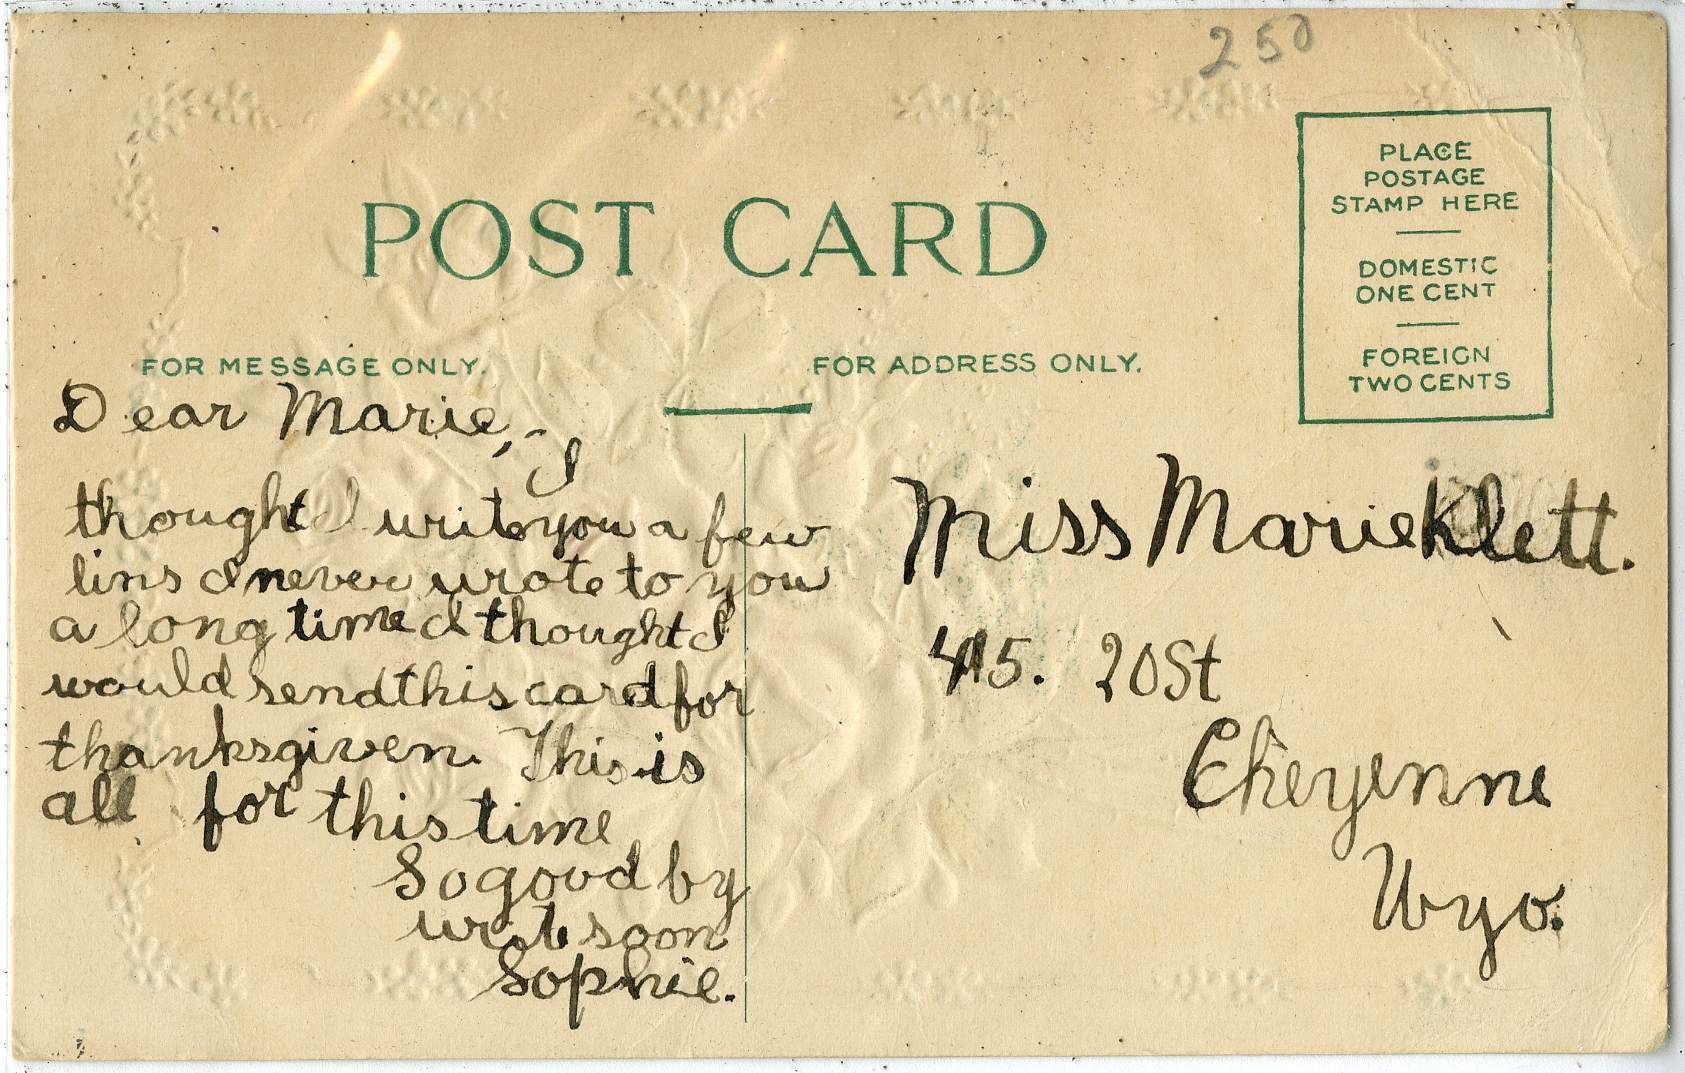 250
POST CARD
PLACE
POSTAGE
STAMP HERE
DOMESTIC
ONE CENT
FOREIGN
TWO CENTS
FOR MESSAGE ONLY.
FOR ADDRESS ONLY.
Dear Marie,-
I
thought I write you a few
lins I never wrote to you
a long time I thought I
would send this card for
thanksgiven. This is
all for this time
So good by
write soon
Sophie.
Miss Marie Klett.
415. 20 St
Cheyenne
Wyo.